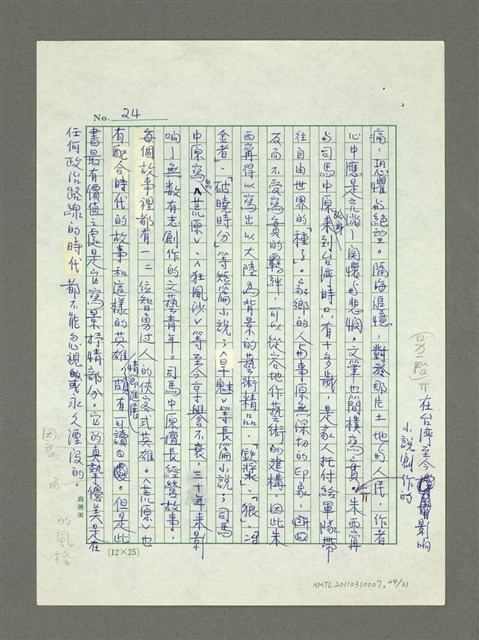 No. 24
痛、恐懼與絕望。隔海追憶,對於那片土地的人民,作者
心中應是充滿了關懷與悲憫,文筆也簡樸寫實。朱西甯
與司馬中原來到台灣時,只有十多歲,是家人托付給軍隊帶
往自由世界的「種子」。家鄉的人與事原無深切的印象,
反而不受寫實的羈絆,可以從容地作藝術的建構,因此朱
西甯得以寫出以大陸為背景的藝術精品,「鐵漿」、「狼」、
「破曉時分」等短篇小說;「旱魃」等長篇小說;司馬
中原寫「荒原」、「狂風沙」等至今享譽不衰,三十年來影
响了無數有志創作的文藝青年。司馬中原擅長終營故事,
每個故事裡都有一二位智勇過人的俠客式英雄。「荒原」也
有配合時代的故事和這樣的英雄,情節進展頗有可讀處。但是此
書最有價值之處是它寫景抒情部分,它的真摯優美是在
任何政治路線的時代都不能忽視或永久湮沒的。
在台灣至今影响
小說創作的
的風格
(12×25)
NMTL20110310007, 24/31